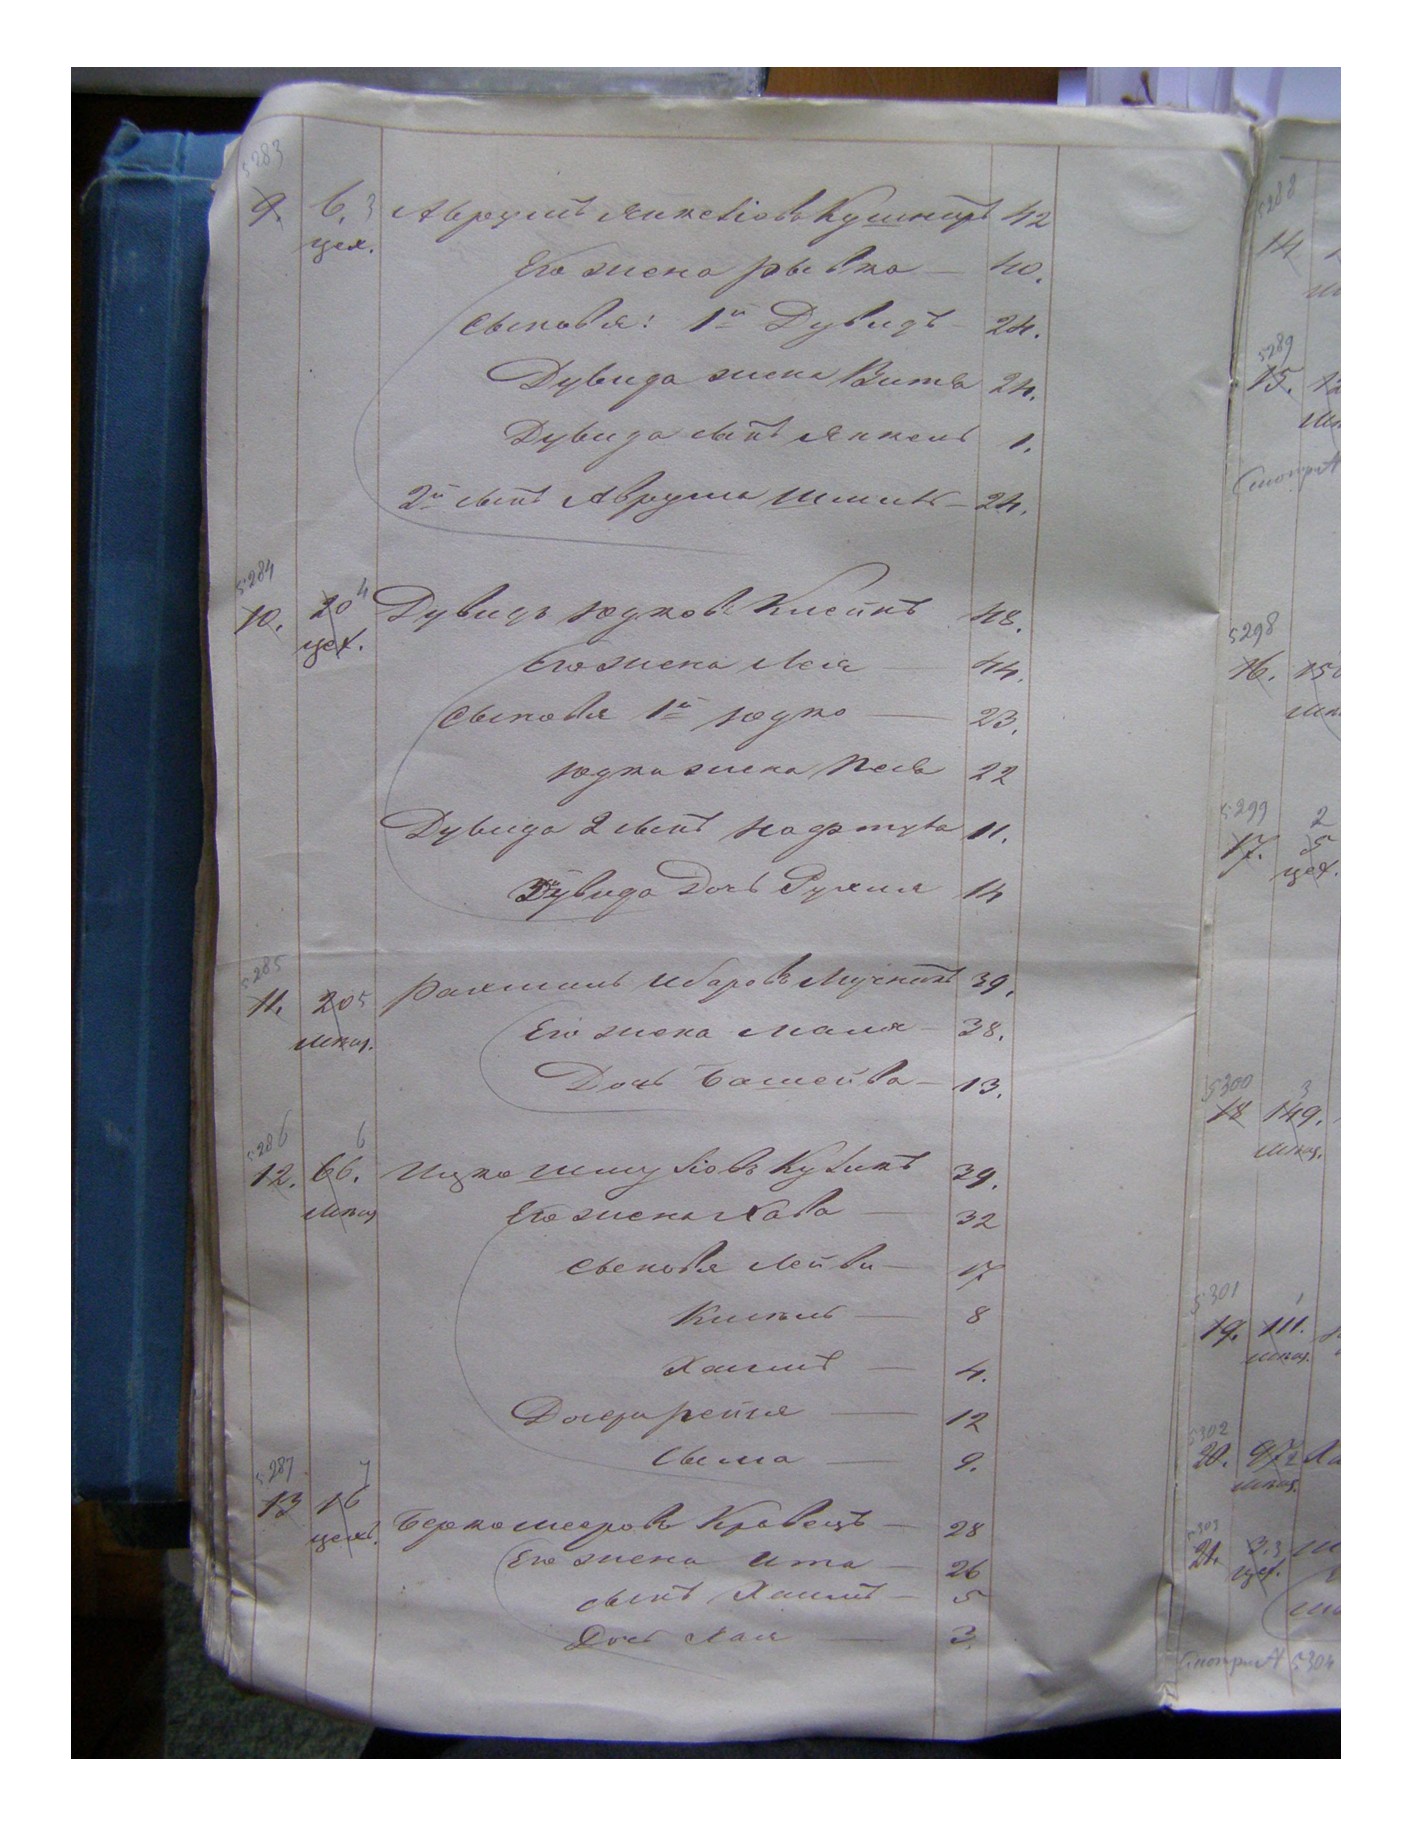 5283
9. 6. 3 Аврумъ Янкеліовъ Кушниръ 42
цех.
Его жена Рывка — 40.
Сыновья: 1й Дувидъ — 24.
Дувида жена Витя 24.
Дувида сынъ Янкель 1.
2й сынъ Аврума Шмиль — 24.
5284
10. 20 4 Дувидъ Юдковъ Клейнъ 48.
цех.
Его жена Лея — 44.
Сыновья 1й Юдко — 23.
Юдка жена Песя 22
Дувида 2 сынъ Нафтула 11.
Дувида Дочь Рухля 14
5285
11. 20 5 Рахмиль Иберовъ Мучникъ 39.
мѣщ.
Его жена Маля — 38.
Дочь Башейва — 13.
5286
12. 66. 6 Ицко Шмуліовъ Куликъ 39.
мѣщ
Его жена Хава — 32
Сыновья Лейви — 17
Кисиль — 8
Хаимъ — 4.
Дочери Рейзя — 12
Сыма — 9.
5287
13 16 7 Берко Мееровъ Кравецъ — 28
цехъ.
Его жена Ита — 26
сынъ Хаимъ — 5
Дочь Хая — 3.
5288
14
5289
15. 12
5298
16. 15
5299
17. 2 5
цех.
5300
18 3 149.
мѣщ.
5301
19. 1 111.
мѣщ.
5302
20. 97
мѣщ.
5303
21. 3.
цех.
5304